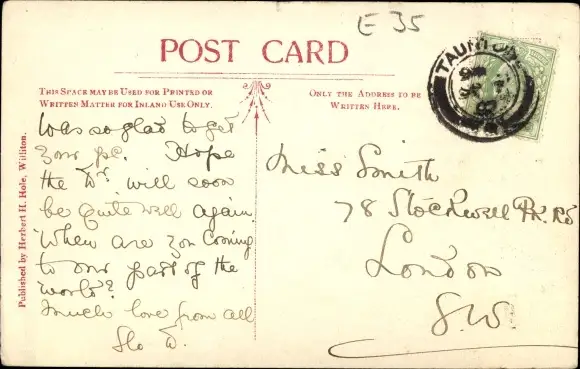 E 35
POST CARD
THIS SPACE MAY BE USED FOR PRINTED OR
WRITTEN MATTER FOR INLAND USE ONLY.
ONLY THE ADDRESS TO BE
WRITTEN HERE.
TAUNTON
Published by Herbert H. Hole, Williton.
Was so glad to get
your pc. Hope
the Dr. will soon
be quite well again.
When are you coming
to our part of the
world?
Much love from all
Flo
Miss Smith
78 Stockwell Pk Rd
London
S.W.